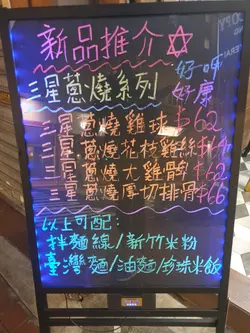 新品推介
三星蔥燒系列
好呀
好康
三星蔥燒雞球$62
三星蔥燒花枝雞絲$64
三星蔥燒大雞髀$62
三星蔥燒厚切排骨$66
以上可配:
拌麵線/新竹米粉
臺灣麵/油麵/珍珠米飯